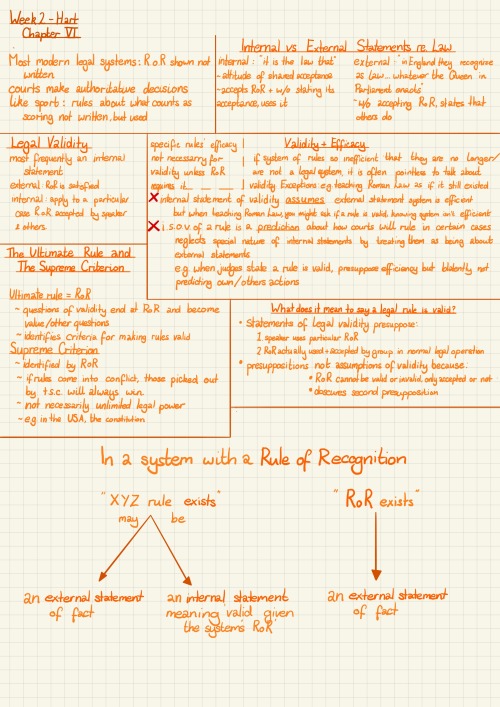 Week 2 - Hart
Chapter VI
Most modern legal systems: RoR shown not
written.
courts make authoritative decisions
like sport: rules about what counts as
scoring not written, but used
Internal vs External Statements re. Law
internal: "it is the law that"
- attitude of shared acceptance
- accepts RoR + w/o stating its
acceptance, uses it
external: "in England they recognize
as law... whatever the Queen in
Parliament enacts"
- w/o accepting RoR, states that
others do
Legal Validity
most frequently an internal
statement
external: RoR is satisfied
internal: apply to a particular
case RoR accepted by speaker
+ others.
specific rules' efficacy
not necessary for
validity unless RoR
requires it
Validity + Efficacy
if system of rules so inefficient that they are no longer/
are not a legal system, it is often pointless to talk about
validity. Exceptions: eg teaching Roman Law as if it still existed
X internal statement of validity assumes external statement system is efficient
but when teaching Roman Law, you might ask if a rule is valid, knowing system isn't efficient
X i.s.o.v of a rule is a prediction about how courts will rule in certain cases
neglects special nature of internal statements by treating them as being about
external statements
e.g. when judges state a rule is valid, presuppose efficiency but blatently not
predicting own/others actions
The Ultimate Rule and
The Supreme Criterion
Ultimate rule = RoR
~ questions of validity end at RoR and become
value/other questions
~ identifies criteria for making rules valid
Supreme Criterion
~ identified by RoR
~ if rules come into conflict, those picked out
by t.s.c. will always win.
~ not necessarily unlimited legal power
~ e.g. in the USA, the constitution
What does it mean to say a legal rule is valid?
• Statements of legal validity presuppose:
1. speaker uses particular RoR
2. RoR actually used + accepted by group in normal legal operation
• presuppositions not assumptions of validity because:
* RoR cannot be valid or invalid, only accepted or not
* obscures second presupposition
In a system with a Rule of Recognition
"XYZ rule exists"
may be
"RoR exists"
an external statement
of fact
an internal statement
meaning valid given
the system's RoR
an external statement
of fact